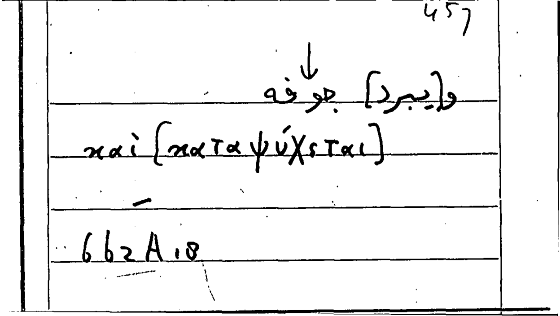 457
و[يبرد] جوفه
καὶ [καταψύχεται]
662A18